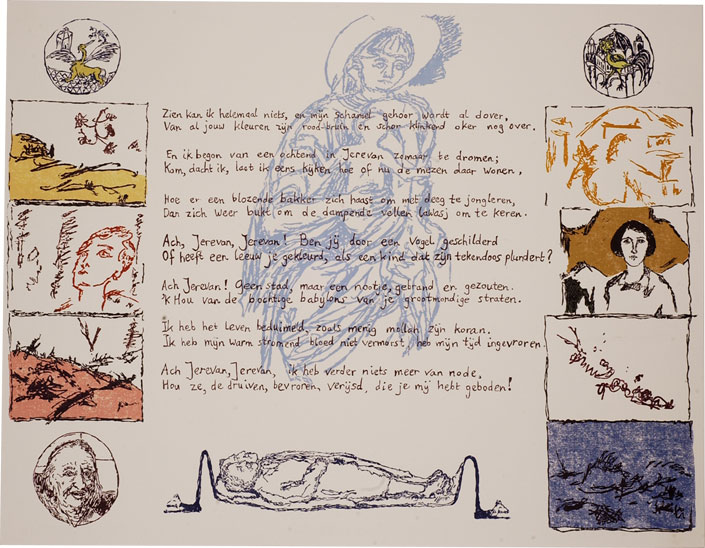 Zien kan ik helemaal niets, en mijn schamel gehoor wordt al dover,
Van al jouw kleuren zijn rood-bruin en schor klinkend oker nog over.
En ik begon van een ochtend in Jerevan zomaar te dromen;
Kom, dacht ik, laat ik eens kijken hoe of nu de mezen daar wonen,
Hoe er een blozende bakker zich haast om met deeg te jongleren,
Dan zich weer bukt om de dampende vellen lawasj om te keren.
Ach, Jerevan, Jerevan! Ben jij door een vogel geschilderd
Of heeft een leeuw je gekleurd, als een kind dat zijn tekendoos plundert?
Ach Jerevan! Geen stad, maar een nootje, gebrand en gezouten.
'k Hou van de bochtige babylons van je grootmondige straten.
Ik heb het leven beduimeld, zoals menig mollah zijn koran.
Ik heb mijn warm stromend bloed niet vermorst, heb mijn tijd ingevroren.
Ach Jerevan, Jerevan, ik heb verder niets meer van node,
Hou ze, de druiven, bevroren, verijsd, die je mij hebt geboden!